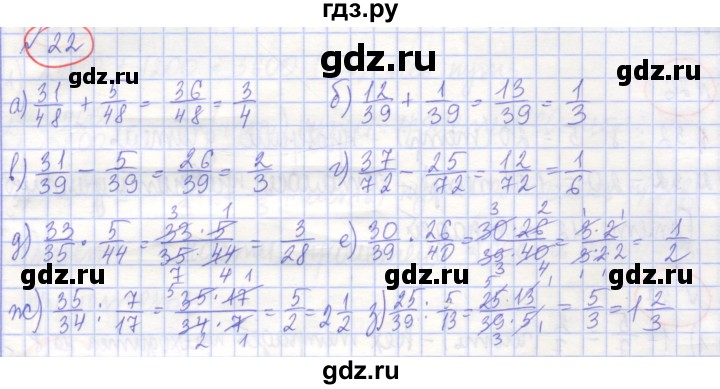 гдз.ру
№ 22
gdz.ru gdz.ru
а) 31/48 + 5/48 = 36/48 = 3/4 б) 12/39 + 1/39 = 13/39 = 1/3
gdz.ru gdz.ru
в) 31/39 − 5/39 = 26/39 = 2/3 г) 37/72 − 25/72 = 12/72 = 1/6
gdz.ru gdz.ru
д) 33/35 · 5/44 = 33·5/35·44 = 3/28 е) 30/39 · 26/40 = 30·26/39·40 = 3·2/3·2·2 = 1/2
gdz.ru gdz.ru
ж) 35/34 : 7/17 = 35·17/34·7 = 5/2 = 2 1/2 з) 25/39 : 5/13 = 25·13/39·5 = 5/3 = 1 2/3
gdz.ru gdz.ru